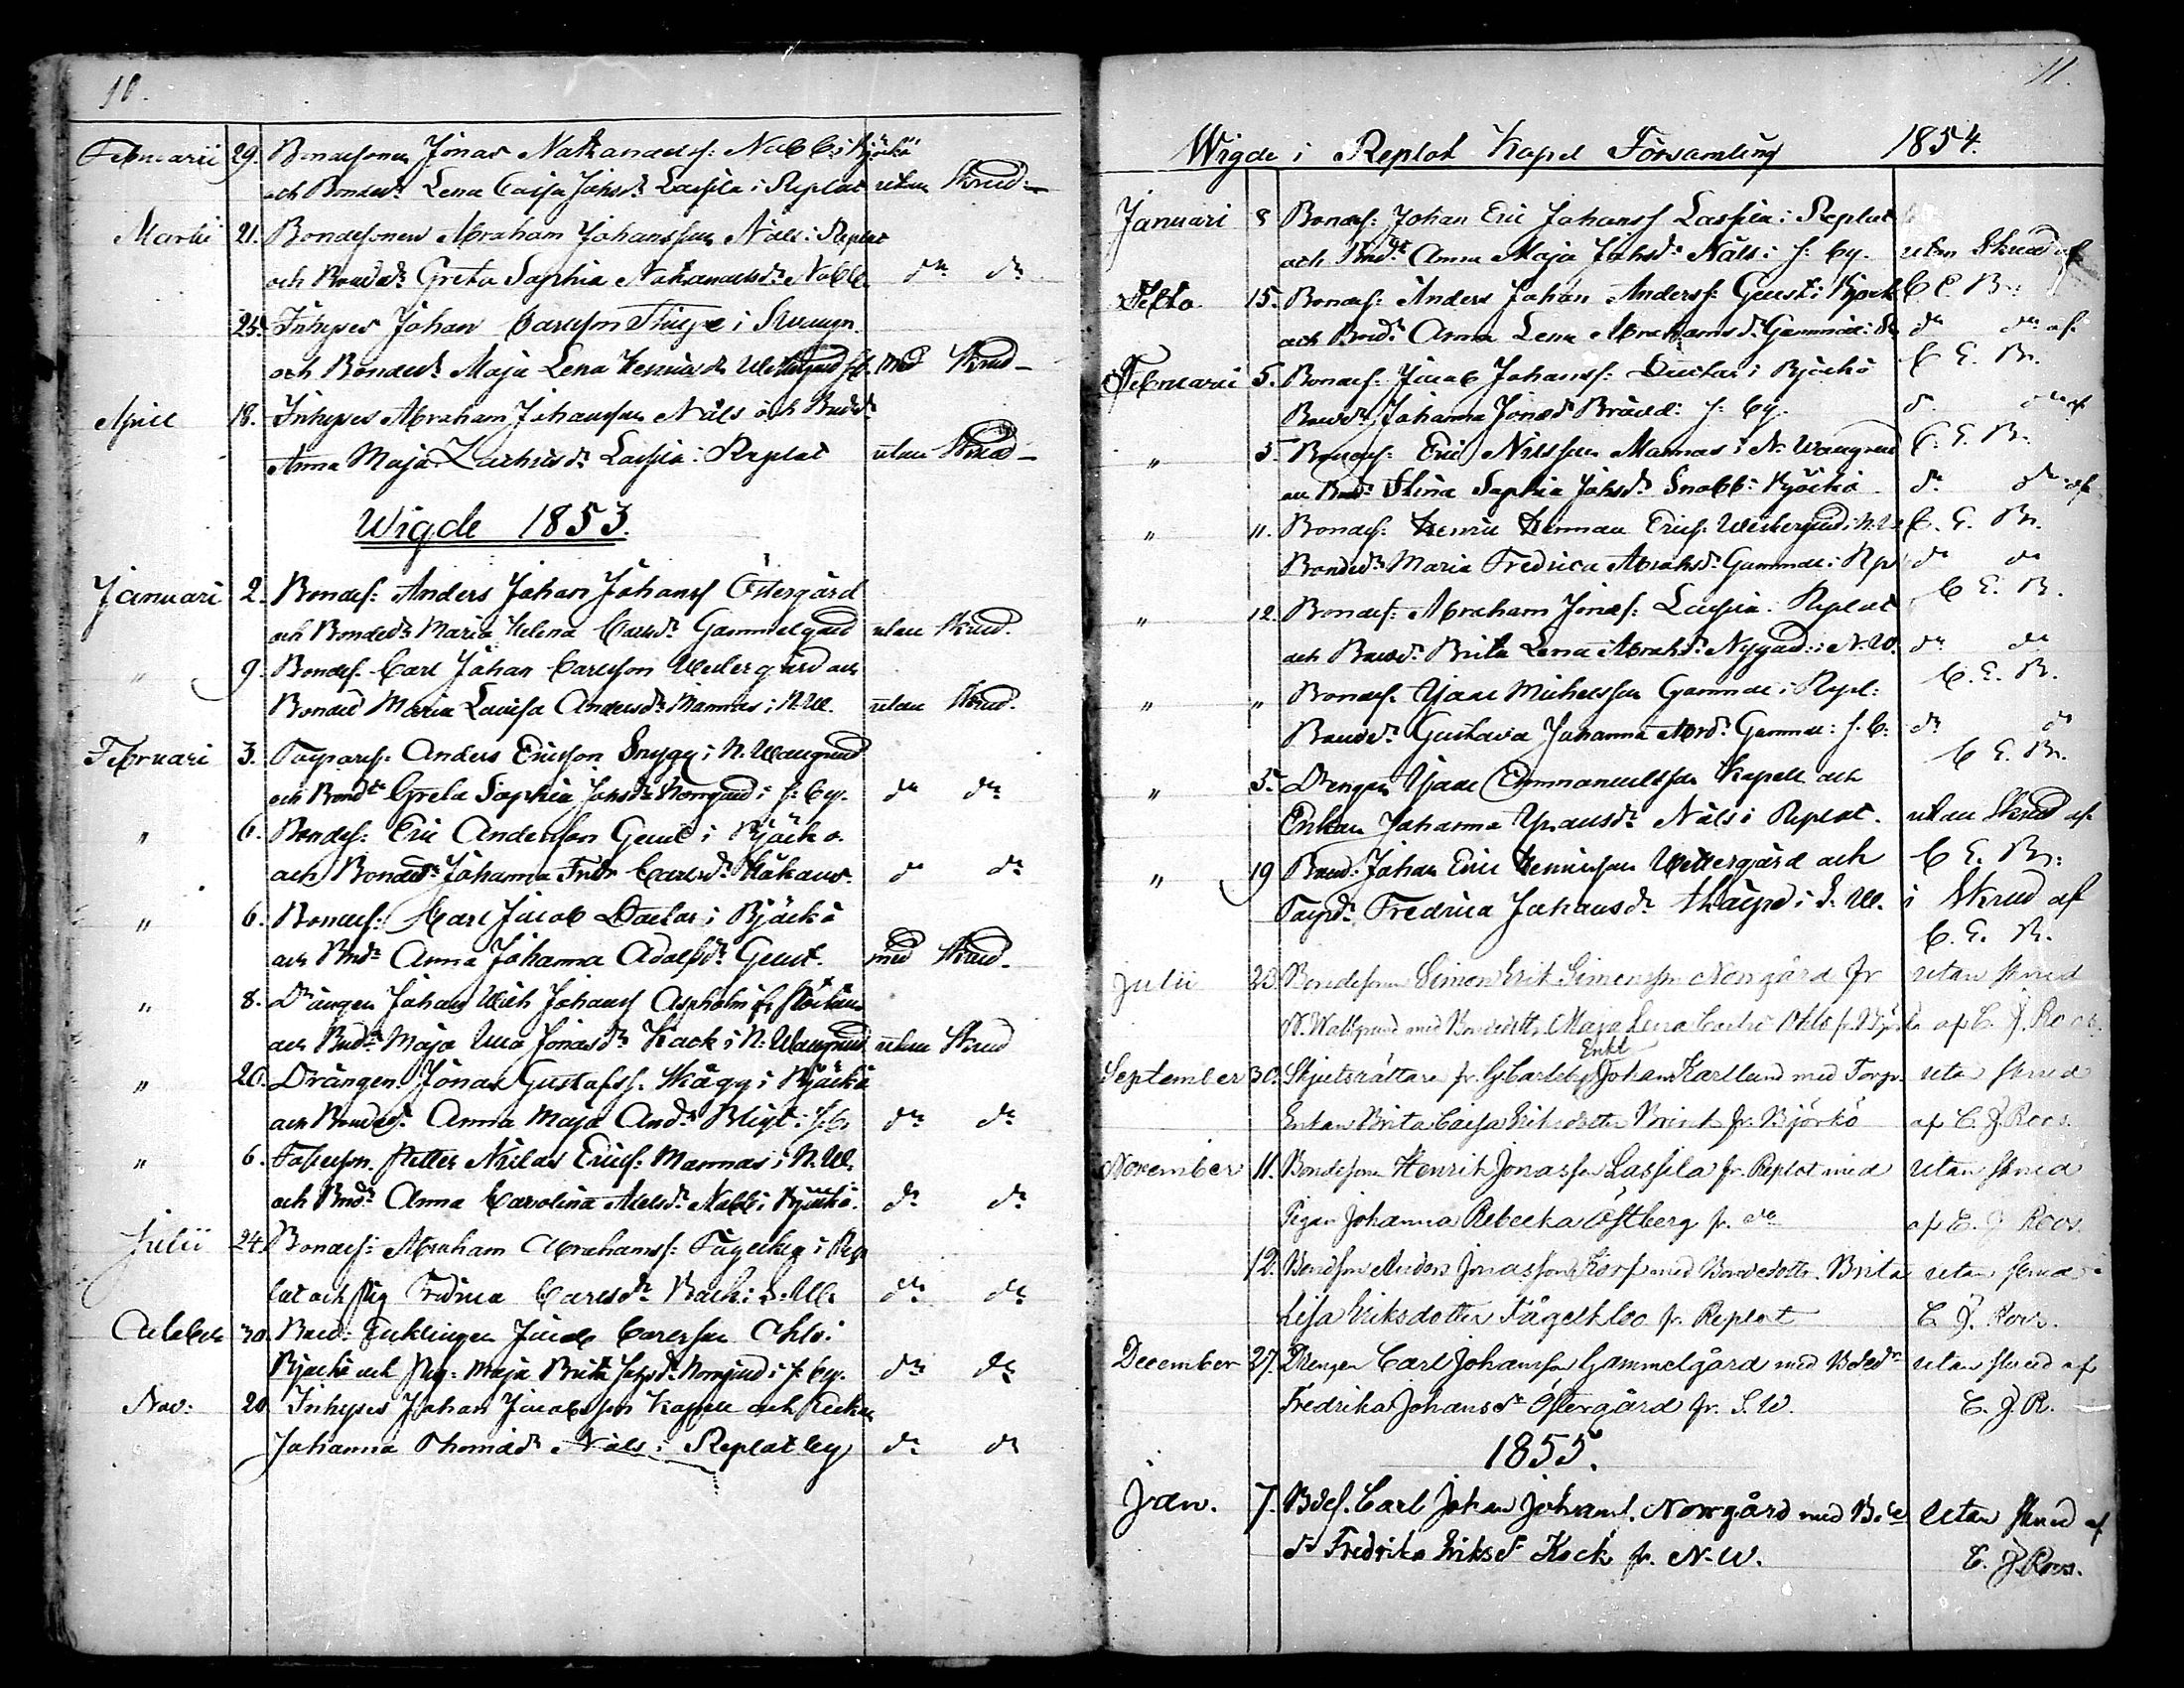 10.
Februarii 29. Bondesonen Jonas Nathanaelss: Nabb i Björkö
och Bonded:r Lena Caisa Johsd:r Lassila i Replot utan Skrud
Martii 21. Bondesonen Abraham Johansson Nåls i Replot
och Bonded:r Greta Sophia Nathanaelsd:r Nabb d:o d:o
25. Inhyses Johan Carlsson i
och Bonded:r Maja Lena Henricsd:r Westergård med Skrud
April 18. Inhyses Abraham Johansson Nåls och Bonded:r
Anna Maja Zachrisd:r Lassila i Replot utan Skrud
Wigde 1853.
Januari 2. Bondes: Anders Johan Johanss Östergård
och Bonded:r Maria Helena Carlsd:r Gammelgård utan Skrud.
" 9. Bondes. Carl Johan Carlsson Westergård och
Bonded Maria Lovisa Andersd:r Mannas i N.W. utan Skrud.
Februari 3. Torpares. Anders Ericsson Snygg i N. Wallgrund
och Bond:dr Greta Sophia Johsd:r Norrgård i s. by. d:o d:o
" 6. Bondes: Eric Andersson Geust i Björkö
och Bonded:r Johanna Fredr Carlsd:r Håkans. d:o d:o
" 6. Bondes: Carl Jacob i Björkö
och Bnd:r Anna Johanna Adolfsd:r Geust. med Skrud.
" 8. Drängen Johan Johanss Aspholm fr
och Bnd:r Maja Jonasd:r Kack i N. Wallgrund utan Skrud
" 20. Drängen Jonas Gustafss. Hägg i Björkö
och Bonded:r Anna Maja And:r i s.b. d:o d:o
" 6. Petter Niclas Erics: Mannas i N.W.
och Bnd:r Anna Carolina Abrsd:r Nabb i Björkö. d:o d:o
Julii 24. Bondes: Abraham Abrahamss: i Rep
lot och Pig Fredrica Carlsd:r Back i S.W. d:o d:o
October 30. Jacob Carlsson
Björkö och Pig: Maja Brita Johsd:r Norrgård i s. by. d:o d:o
Nov: 20. Inhyses Johan Jacobsson Kapell och Enkan
Johanna Thomasd:r Nåls i Replot by d:o d:o
11.
Wigde i Replot Kapel Församling 1854.
Januari 8 Bondes: Johan Eric Johanss Lassila i Replot
och Bnd:r Anna Maja Johsd:r Nåls i s. by. utan Skrud af
15. Bondes: Anders Johan Anderss: Geust i Björkö C E. Br:
och Bond:r Anna Lena Abrahamsd:r Gammal: d:o d:o d:o af
Februarii 5. Bondes: Jacob Johanss: i Björkö C E. Br.
Bonded:r Johanna Jonasd:r s: by. d:o d:o af
" 5. Bondes: Eric Nilsson Mannas i N. Wallgrund C. E. Br.
och Bond:r Stina Sophia Johsd:r Snabb i Björkö d:o d:o af
" 11. Bondes: Henric Herman Erics: Westergård i N.W. C. E. Br.
Bonded:r Maria Fredrica Abrahsd:r Gammal i Rp d:o d:o
" 12. Bondes: Abraham Jonas: Lassila i Replot C E. B.
och Bonded:r Brita Lena Abrahd:r Nygård i N. W. d:o d:o
" " Bondes. Isaac Michelsson Gammal i Repl: C. E. B.
Bonded:r Gustava Johanna Abrd:r Gammal: s. b. d:o d:o
" 5. Drengen Isaac Emmanuelsson Kapell och C E. Br.
Enkan Johanna Nåls i Replot. utan Skrud af
" 19 Bond: Johan Eric Henricsson Westergård och C E. Br:
Torpd:r Fredrica Johansd:r i S. W. i Skrud af
C. E. B.
Julii 23. Bondesonen Simon Erik Simonsson Norrgård fr utan skrud
N. Wallgrund med Bondedottr Maja Lena Carlsd Ohls fr. Björkö af C. J. Roos.
Enkl
September 30. Skjutsrättare fr. G. Carleby Johan Karllund med Torpr. utan skrud
Enkan Brita Caisa Eriksdotter Brink fr. Björkö af C. J. Roos.
November 11. Bondesonen Henrik Jonasson Lassila fr. Replot med utan skrud
Pigan Johanna Rebecka Östberg fr. d:o af C. J Roos.
12. Bondson Anders Jonasson Korp med Bondedottr. Brita utan skrud
Lisa Eriksdotter Fågelkloo fr. Replot C. J. Roos.
December 27. Drengen Carl Johansson Gammelgård med Bdsd:r utan skrud af
Fredrika Johansd:r Östergård fr. S. W. C. J. R.
1855.
Jan. 7. Bdes. Carl Johan Johans. Norrgård med Bde utan skrud af
d:r Fredrika Eriksd:r Kack fr. N. W. C. J. Roos.